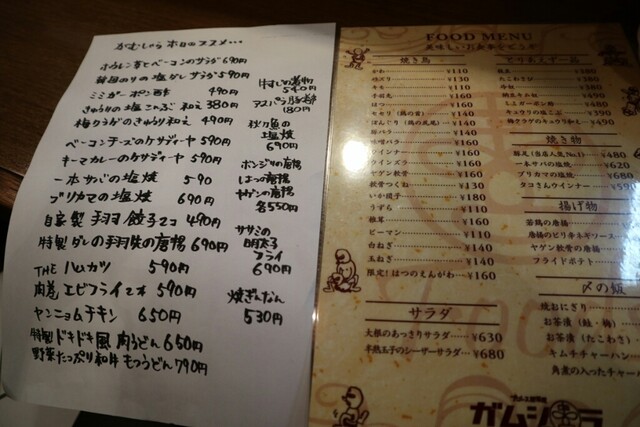 がむしゃら 本日のススメ…
ほうれん草とベーコンのサラダ 690円
韓国のりの塩ダレサラダ 590円
ミミガーポン酢 490円
きゅうりの塩こんぶ和え 380円
梅クラゲのきゅうり和え 490円
ベーコンチーズのケサディーヤ 590円
キーマカレーのケサディーヤ 590円
一本サバの塩焼 590
ブリカマの塩焼 690円
自家製 手羽餃子2コ 490円
特製ダレの手羽先の唐揚 690円
THE ハムカツ 590円
肉巻エビフライ2本 590円
ヤンニョムチキン 650円
特製ドキドキ風 肉うどん 650円
野菜たっぷり和牛もつうどん 790円
540円
アスパラ豚巻
180円
秋刀魚の
塩焼
690円
ボンジリの唐揚
はつの唐揚
ヤゲンの唐揚
各550円
ササミの
明太子
フライ
690円
焼ぎんなん
530円
FOOD MENU
美味しいお食事をどうぞ
焼き鳥
かわ ¥110
ずり ¥130
キモ ¥110
手羽先 ¥160
はつ ¥160
セセリ(鶏の首) ¥140
ぼんじり(鶏の尻尾) ¥140
豚バラ ¥140
味噌バラ ¥160
ウインナー ¥160
ウインズラ ¥160
ヤゲン軟骨 ¥160
軟骨つくね ¥130
いか団子 ¥180
うずら ¥110
椎茸 ¥160
ピーマン ¥110
白ねぎ ¥140
玉ねぎ ¥140
限定!はつのえんがわ ¥160
サラダ
大根のあっさりサラダ ¥630
半熟玉子のシーザーサラダ ¥680
とりあえず一品
枝豆 ¥380
たこわさび ¥380
焼き物
一本サバの塩焼
ブリカマの塩焼
タコさんウインナー
揚げ物
若鶏の唐揚
唐揚のピリ辛ネギソース
ヤゲン軟骨の唐揚
フライドポテト
〆の飯
焼おにぎり
お茶漬(鮭・梅)
お茶漬(たこわさ)
キムチチャーハン
角煮の入ったチャーハン
ガムシャラ